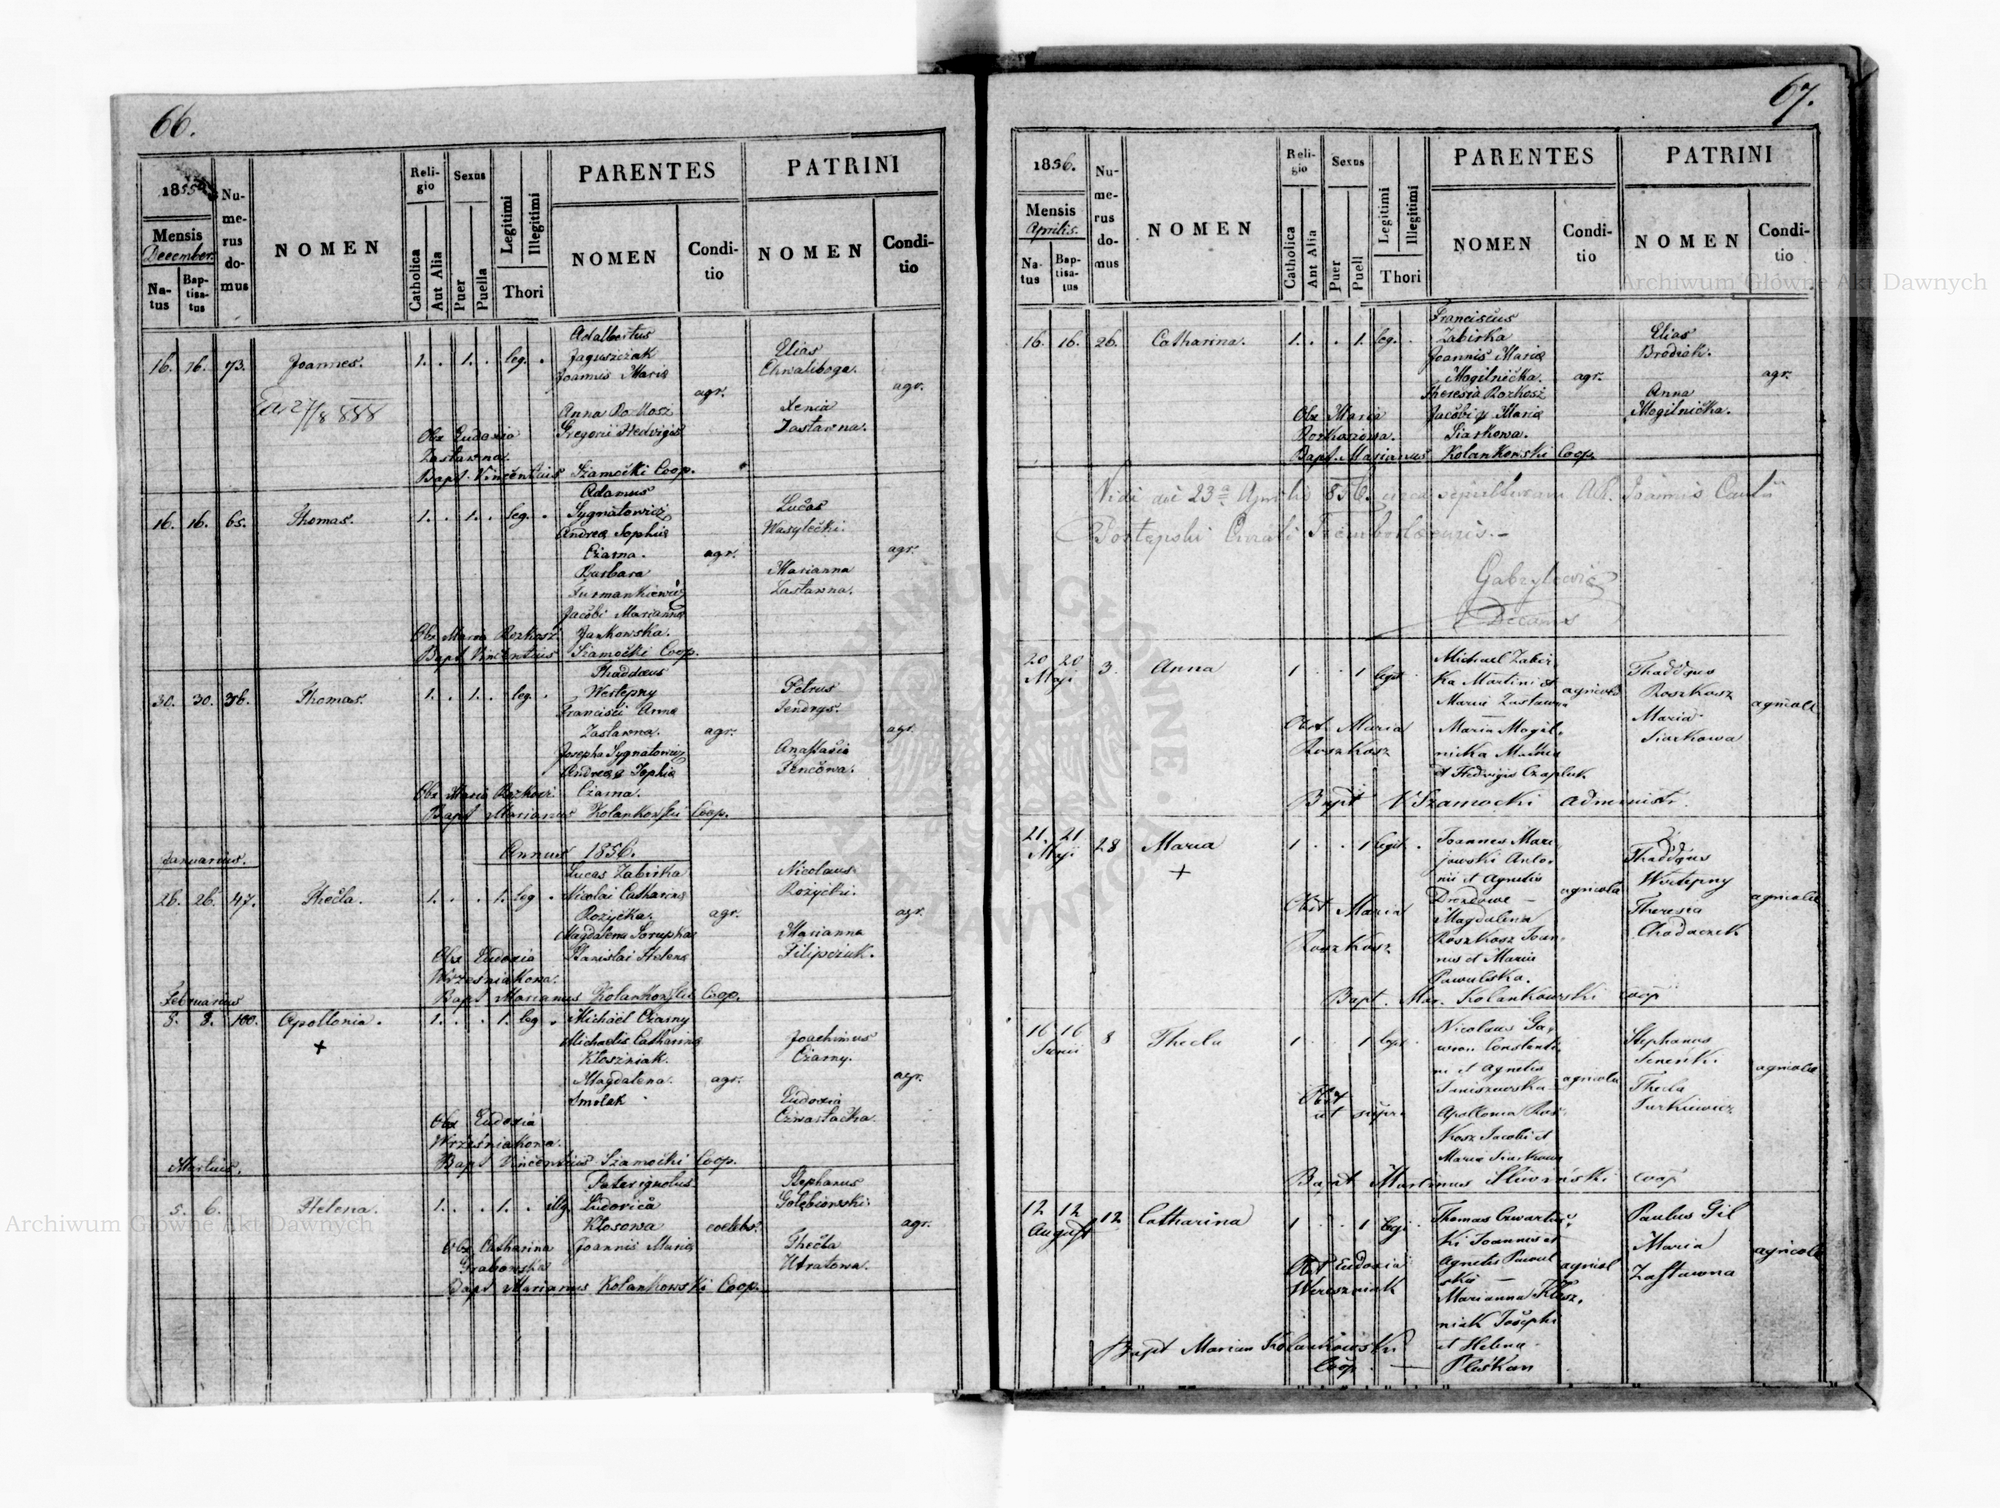 66.
1855
Mensis
December.
Na-
tus
Bap-
tisa-
tus
Nu-
me-
rus
do-
mus
NOMEN
Reli-
gio
Catholica
Aut Alia
Sexus
Puer
Puella
Legitimi
Illegitimi
Thori
PARENTES
NOMEN
Condi-
tio
PATRINI
NOMEN
Condi-
tio
16. 16. 73. Joannes. 1. . 1. . leg. .
Adalbertus
Jaguszczak
Joannis Maria
Anna Rozkosz
Gregorii Hedvigis
agr.
Elias
Chwaliboga.
Xenia
Zastawna.
agr.
Obx Eudoxia
Zastawna.
Bapt. Vincentius Szamocki Coop.
16. 16. 65. Thomas. 1. . 1. . leg. .
Adamus
Sygnatowicz
Andreæ Sophia
Czarna.
Barbara
Furmankiewicz
Jacobi Marianna
Jankowska.
agr.
Lucas
Wasylecki.
Marianna
Zastawna.
agr.
Obx Maria Rozkosz.
Bapt Vincentius Szamocki Coop.
30. 30. 36. Thomas. 1. . 1. . leg. .
Thaddæus
Wertepny
Francisci Anna
Zastawna.
Josepha Sygnatowicz
Andreæ Sophia
Czarna.
agr.
Petrus
Fendrys.
Anastasia
Fencowa.
agr.
Obx Maria Rozkosz.
Bapt Marianus Kolankowski Coop.
Annus 1856.
Januarius.
26. 26. 47. Thecla. 1. . . 1. leg .
Lucas Zabirka
Nicolai Catharina
Rozycka.
Magdalena Sorupka
Stanislai Helena
agr.
Nicolaus
Rozycki.
Marianna
Filipczuk.
agr.
Obx Eudoxia
Wrzesniakowa.
Bapt Marianus Kolankowski Coop.
Februarius
8. 8. 100. Apollonia. 1. . . 1. leg .
+
Michael Czarny
Michaelis Catharina
Kloszniak.
Magdalena.
Smolak
agr.
Joachimus
Czarny.
Eudoxia
Czwartacka.
agr.
Obx Eudoxia
Wrzesniakowa.
Bapt Vincentius Szamocki Coop.
Martius.
5. 6. Helena. 1. . 1. . illg.
Pater ignotus
Ludovica
Klosowa
Joannis Maria
coelebs.
Stephanus
Golębiowski.
Thecla
Utratowa.
agr.
Obx Catharina
Grabowska
Bapt Marianus Kolankowski Coop.
67.
1856.
Mensis
Aprilis.
Na-
tus
Bap-
tisa-
tus
Nu-
me-
rus
do-
mus
NOMEN
Reli-
gio
Catholica
Aut Alia
Sexus
Puer
Puell
Legitimi
Illegitimi
Thori
PARENTES
NOMEN
Condi-
tio
PATRINI
NOMEN
Condi-
tio
16. 16. 26. Catharina. 1. . . 1. leg. .
Franciscus
Zabirka
Joannis Maria
Mogilnicka.
Theresia Rozkosz
Jacobi & Maria
Siarkowa.
agr.
Elias
Brodiak.
Anna
Mogilnicka.
agr.
Obx Maria
Rozkoszowa.
Bapt. Marianus Kolankowski Coop.
Vidi die 23ª Aprilis 856. circa sepulturam Ad. Joannis Cantii
Postępski Curati Trembovlensis.
Gabrylewicz
Decanus
20 20 3. Anna 1 . . 1 legit .
Maji
Michael Zabir-
ka Martini et
Maria Zastawna
Maria Mogil-
nicka
et Hedvigis Czapluk.
agricola
Thaddæus
Roszkosz
Maria
Siarkowa
agricola
Obst. Maria
Roszkosz
Bapt V Szamocki administr.
21. 21 28 Maria 1 . . 1 legit .
Maji
+
Joannes Mare-
jowski Anto-
nii et Agnetis
Magdalena
Roszkosz Joan-
nis et Maria
Pawulska.
agricola
Thaddæus
Wertepny
Theresia
Chadaczek
agricola
Obst Maria
Roszkosz
Bapt. Mar. Kolankowski coop
16 16 8 Thecla 1 . . 1 legit .
Junii
Nicolaus Ga-
wron Constanti-
ni et Agnetis
Apollonia Ros-
kosz Jacobi et
Maria Siarkowa
agricola
Stephanus
Thecla
Turkiewicz
agricola
Obst
ut supra
Bapt Martinus Sliwinski coop
12 12 12 Catharina 1 . . 1 legi .
August
Thomas Czwartac-
ki Joannis et
Agnetis Pawul
ska —
Marianna Klosz-
niak Josephi
et Helena
Pluskan
agricol
Paulus Gil
Maria
Zastawna
agricola
Obst Eudoxia
Wereszniak
Bapt Marian Kolankowski
Coop.
Archiwum Główne Akt Dawnych
Archiwum Główne Akt Dawnych
ARCHIWUM GŁÓWNE AKT DAWNYCH